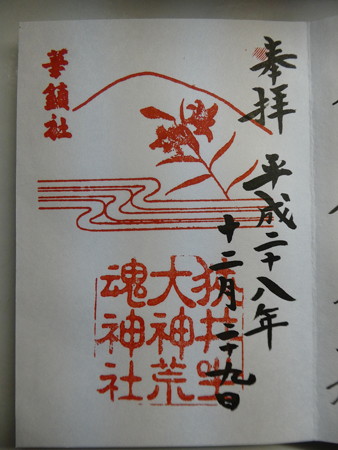 奉拝
平成二十八年
十二月二十九日
華鎮社
狭井坐
大神荒
魂神社